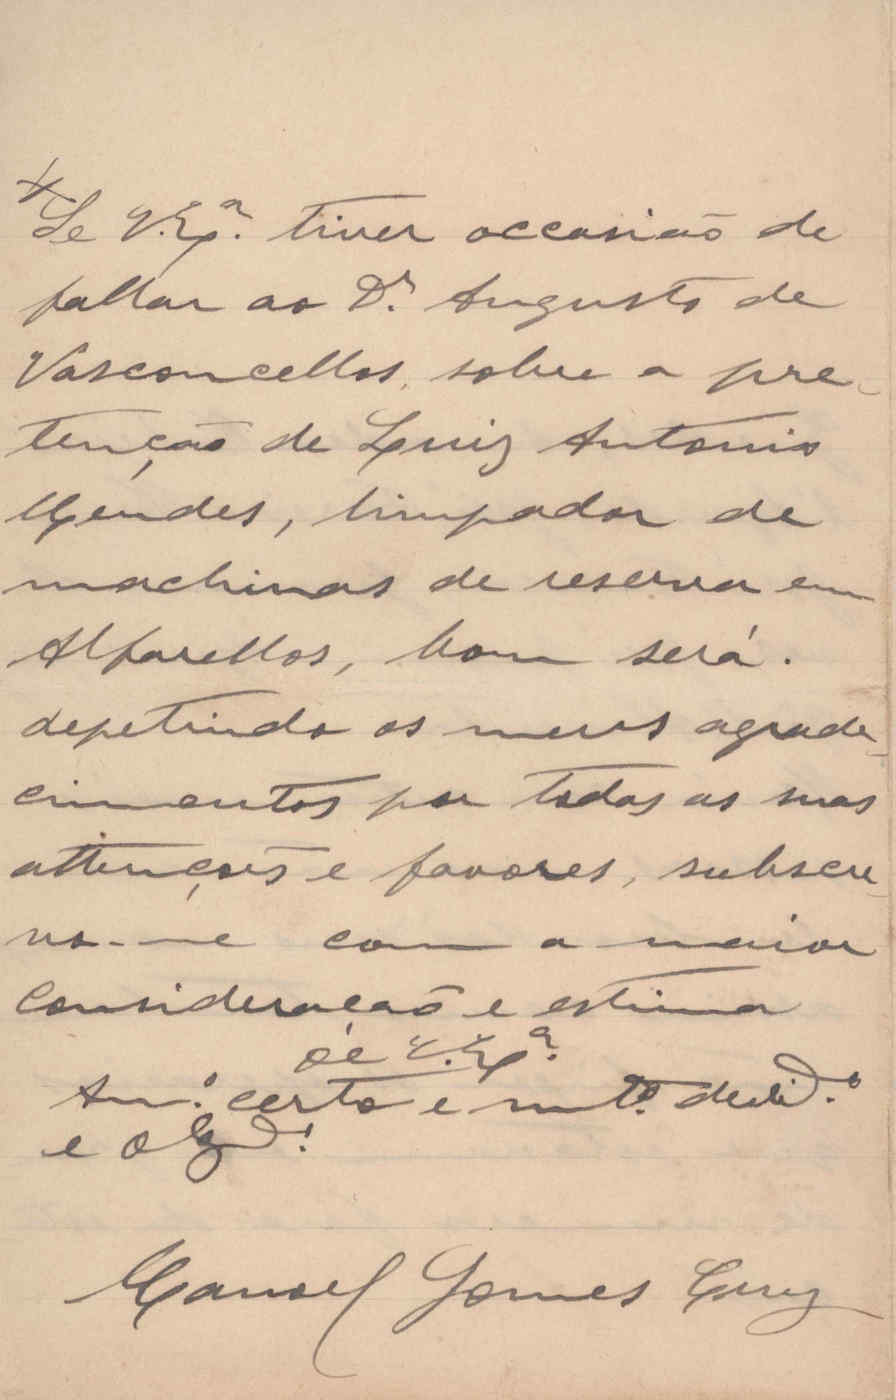 Se V. Ex.ª tiver occasião de
fallar ao D.r Augusto de
Vasconcellos, sobre a pre-
tenção de Luiz Antonio
Mendes, limpador de
machinas de reserva em
Alfarellos, bom será.
Repetindo os meus agrade-
cimentos por todas as suas
attenções e favores, subscre-
vo-me com a maior
consideração e estima
de V. Ex.ª
Am.º certo e mt.º
e Obgd.º
Manoel Gomes Cruz